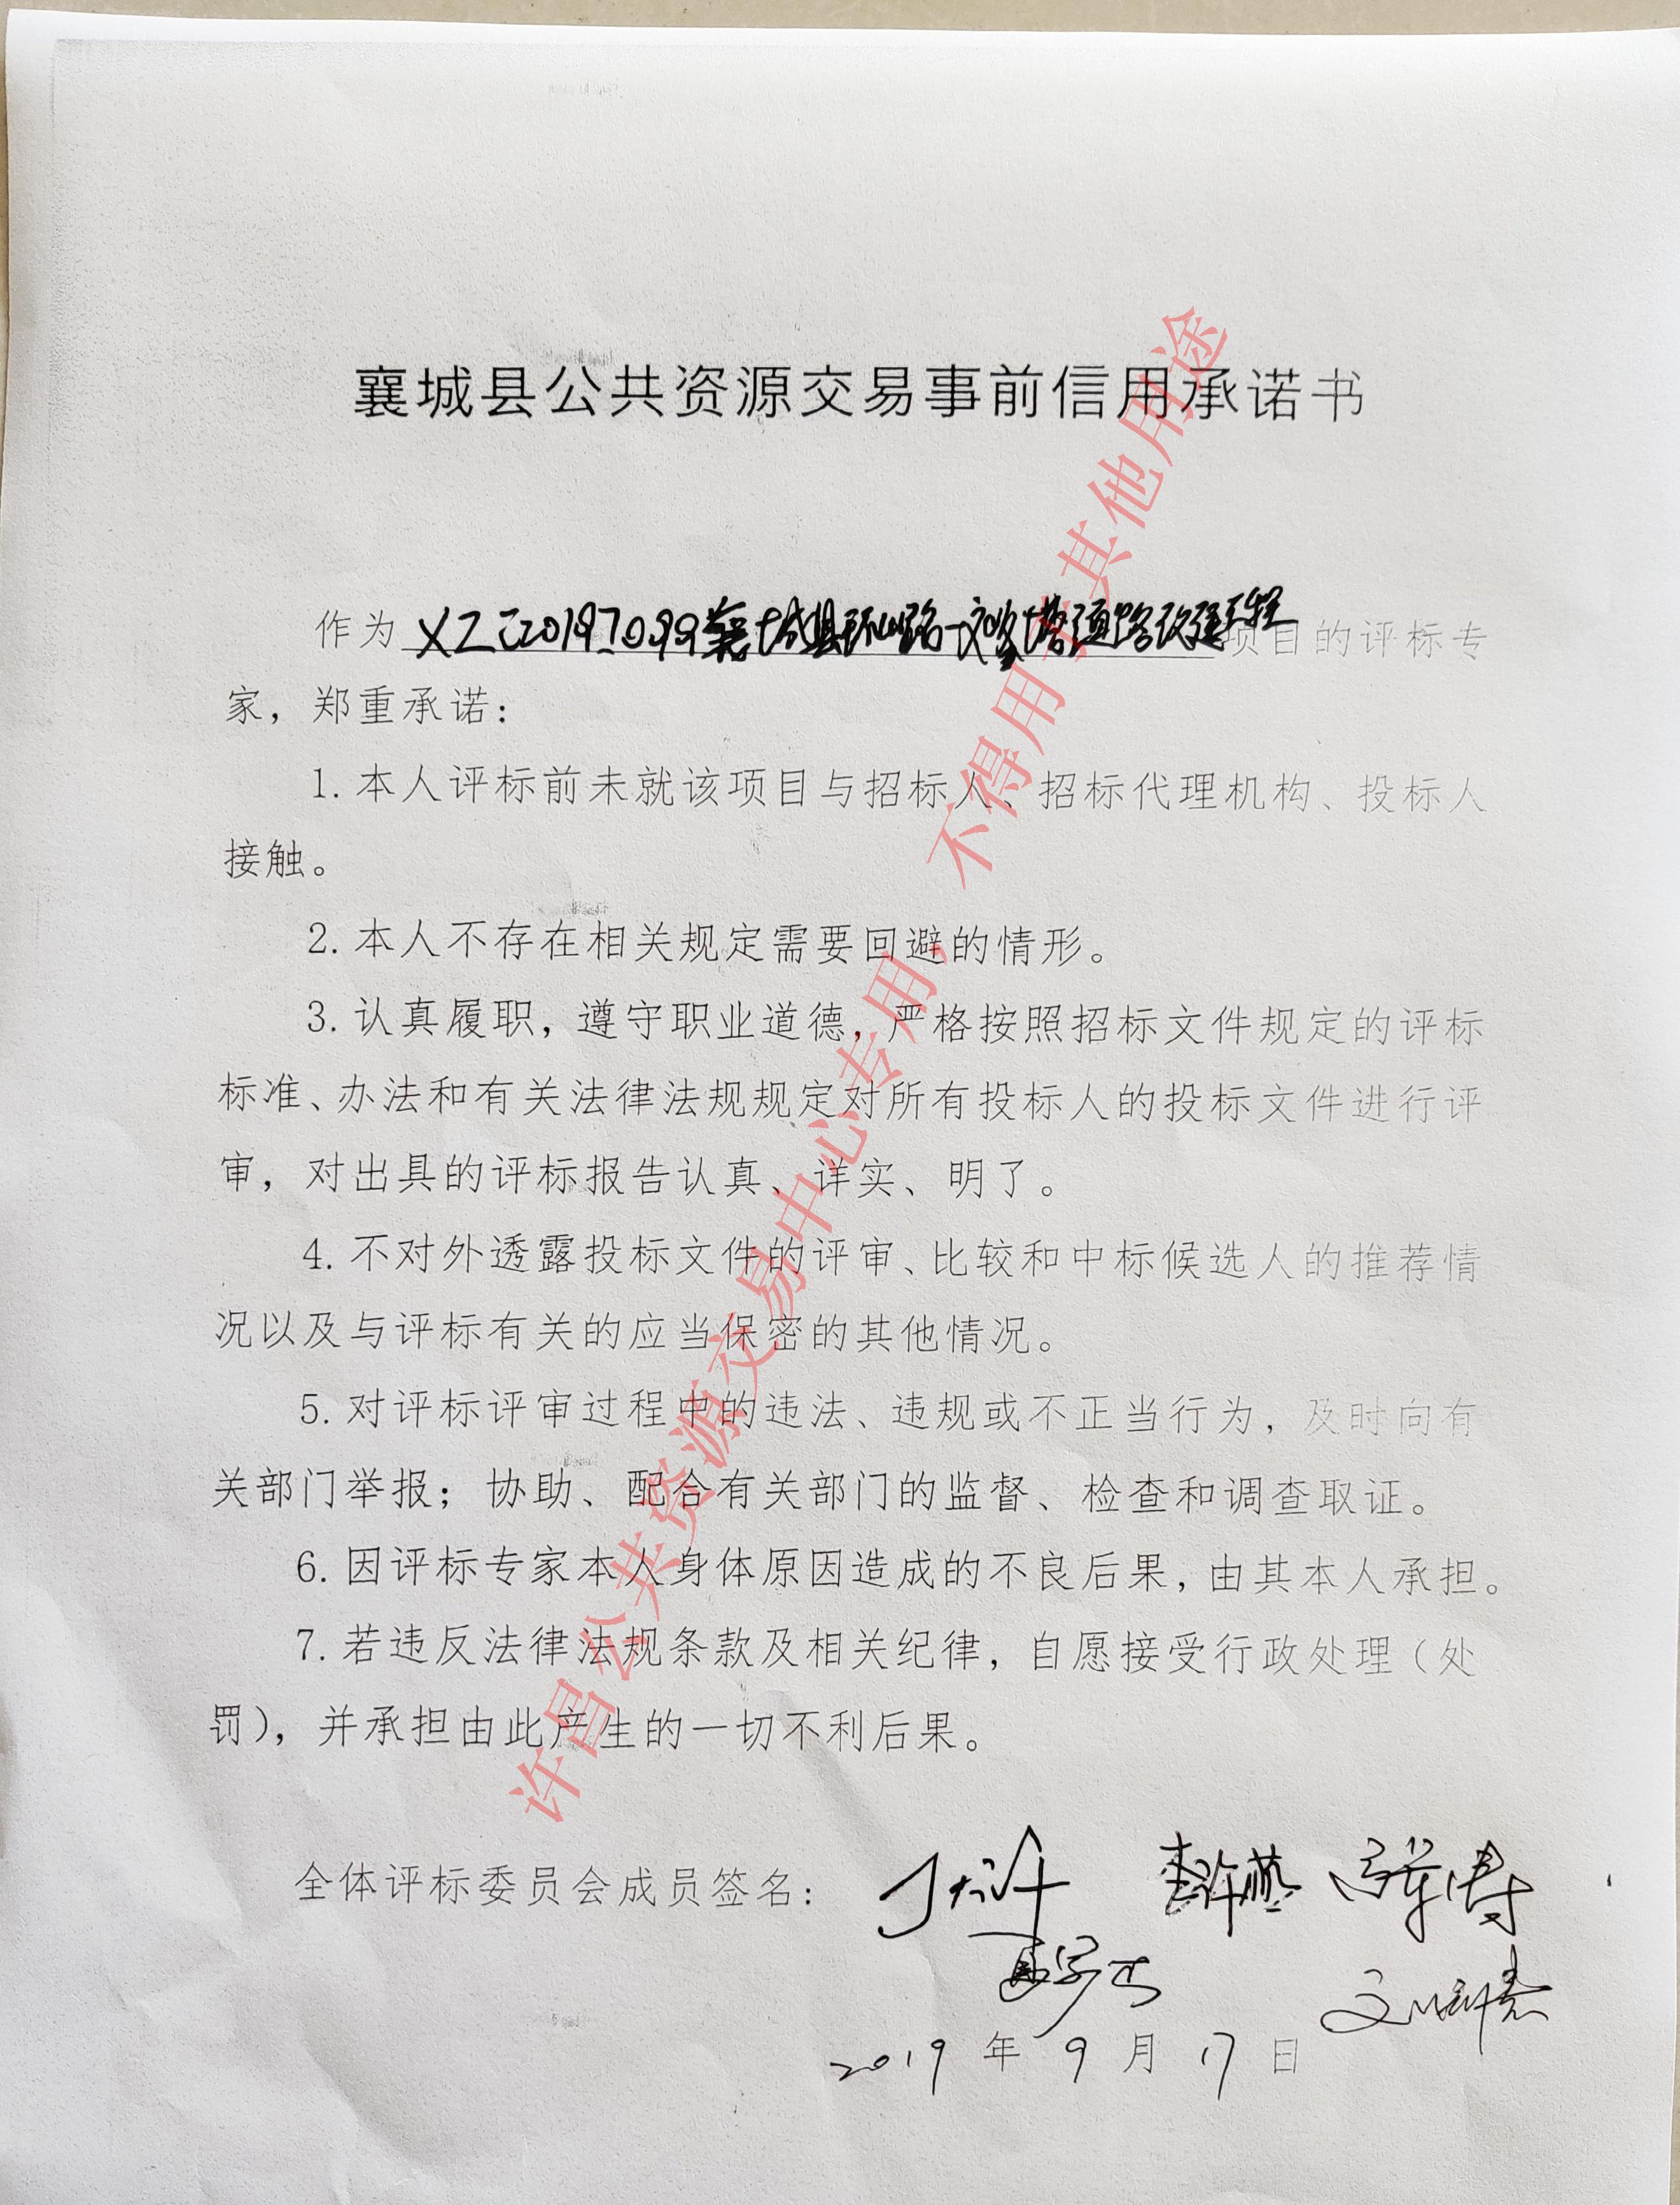 襄城县公共资源交易事前信用承诺书
作为 襄城县环山路 道路改建工程 项目的评标专
家，郑重承诺：
1.本人评标前未就该项目与招标人、招标代理机构、投标人
接触。
2.本人不存在相关规定需要回避的情形。
3.认真履职，遵守职业道德，严格按照招标文件规定的评标
标准、办法和有关法律法规规定对所有投标人的投标文件进行评
审，对出具的评标报告认真、详实、明了。
4.不对外透露投标文件的评审、比较和中标候选人的推荐情
况以及与评标有关的应当保密的其他情况。
5.对评标评审过程中的违法、违规或不正当行为，及时向有
关部门举报；协助、配合有关部门的监督、检查和调查取证。
6.因评标专家本人身体原因造成的不良后果，由其本人承担。
7.若违反法律法规条款及相关纪律，自愿接受行政处理（处
罚），并承担由此产生的一切不利后果。
全体评标委员会成员签名：
2019 年 9 月 17 日
许昌公共资源交易中心专用，不得用于其他用途